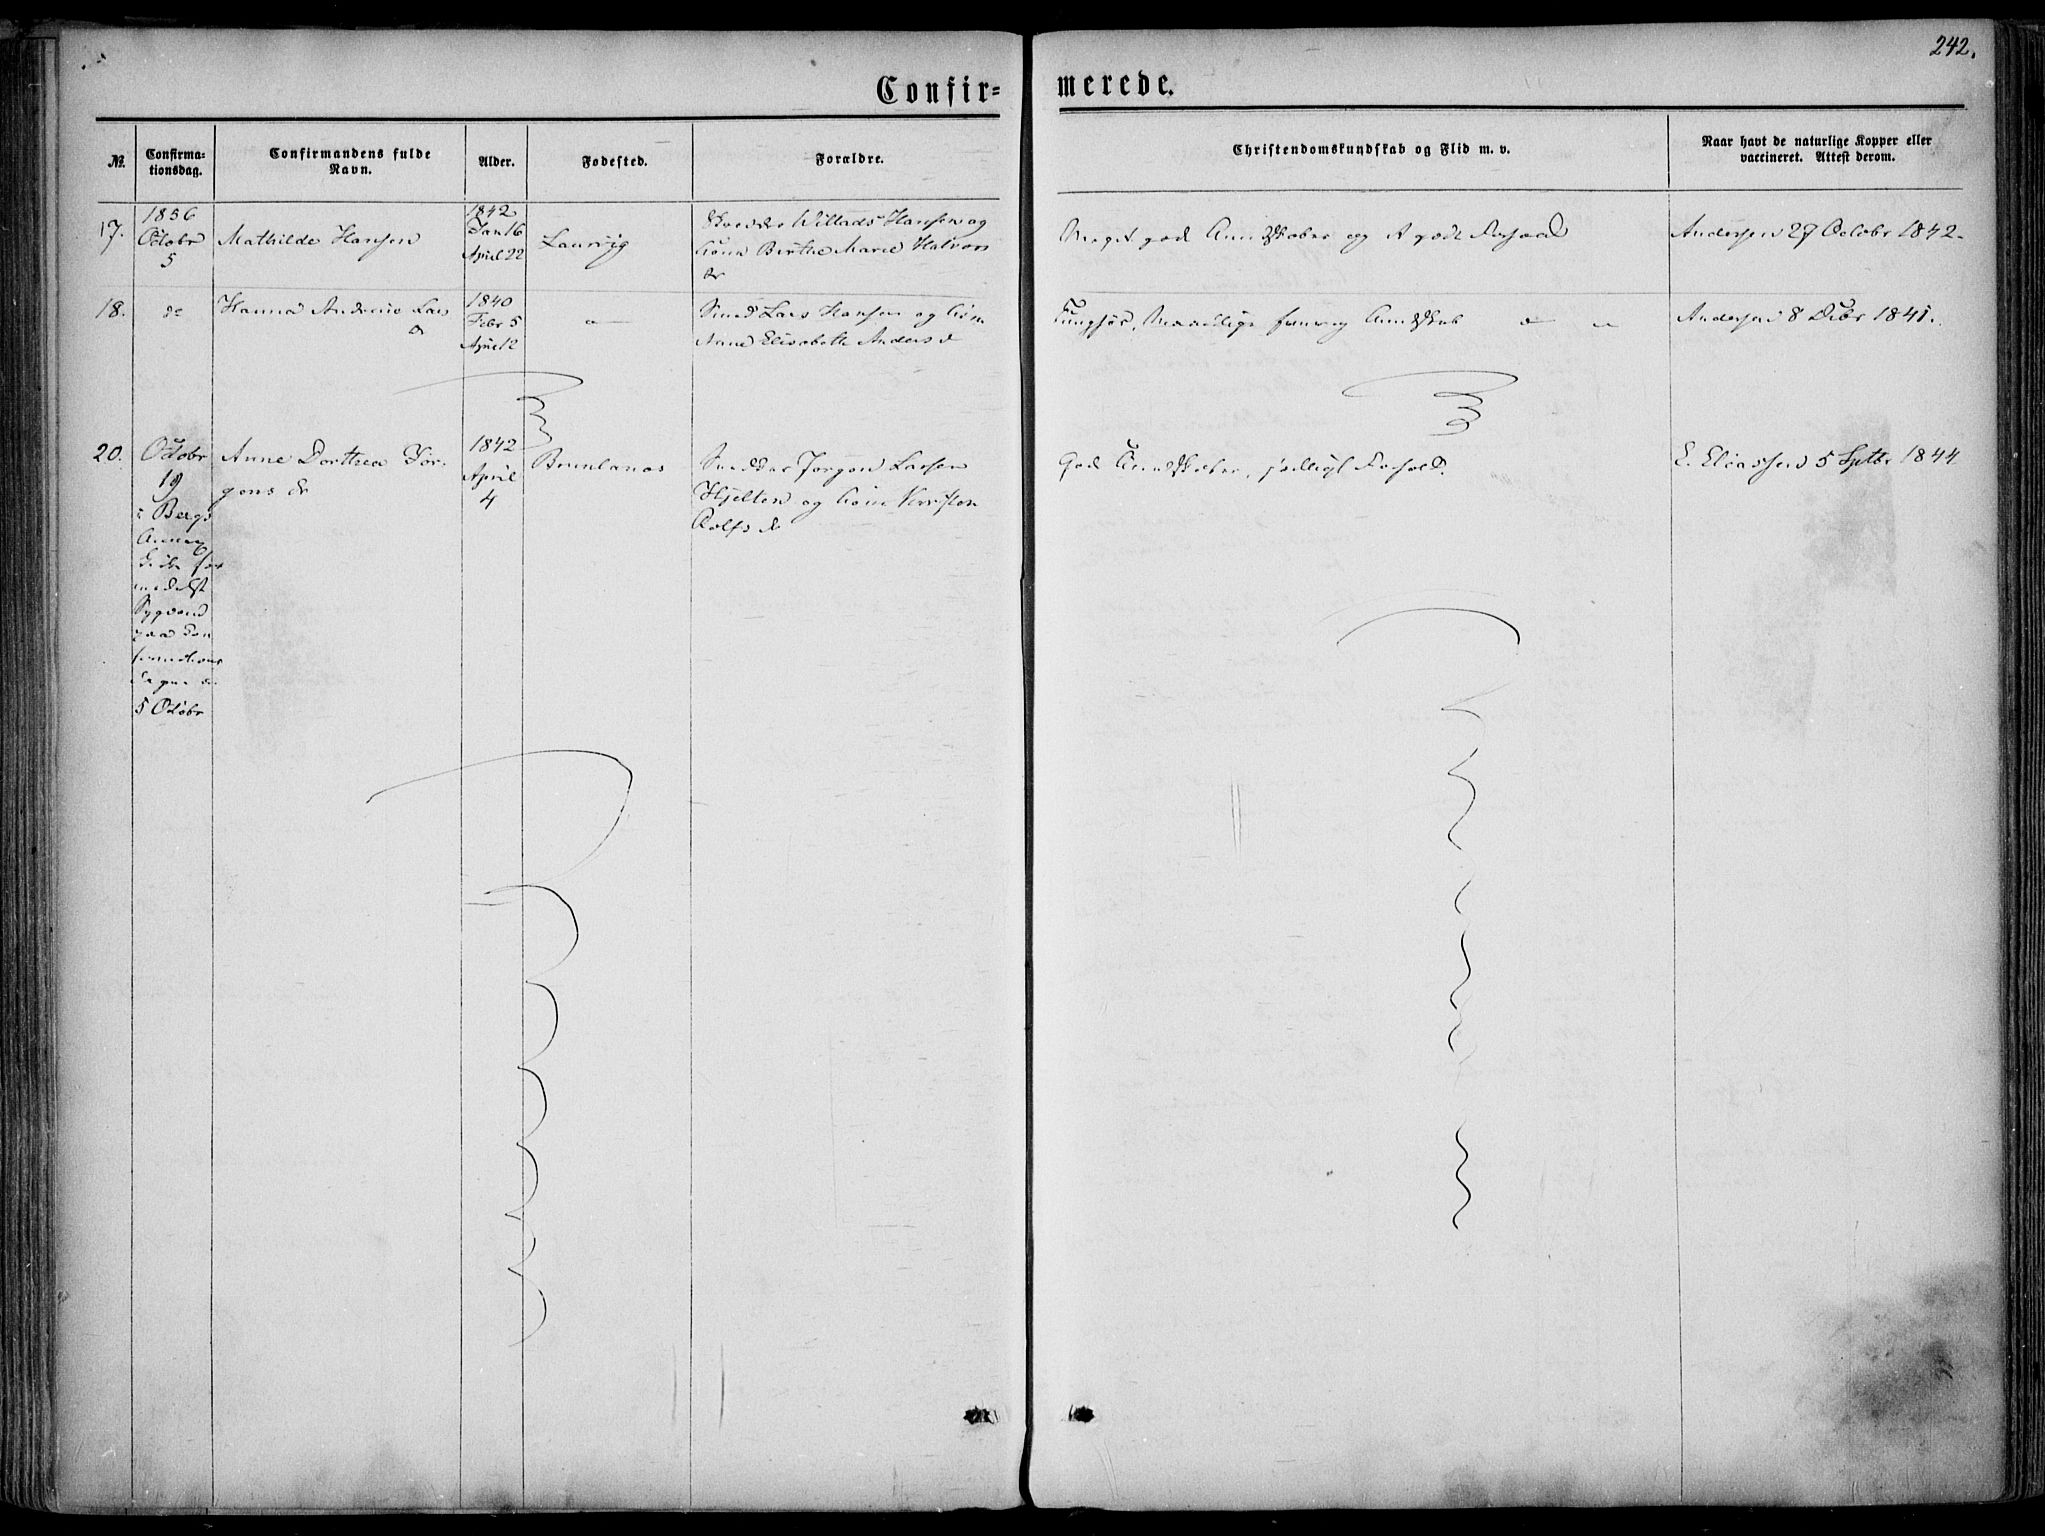 242.
Confir= merede.
№.
Confirma-
tionsdag.
Confirmandens fulde
Navn.
Alder.
Fodested.
Forældre.
Christendomskundskab og Flid m. v.
Naar havt de naturlige Kopper eller
vaccineret. Attest derom.
17.
1856
Octobr
5
Mathilde Hansen
1842
Jan 16
April 22
Laurvig
Willads Hansen og
Kone Birthe Marie Halvors
dr
Meget gode Kundskaber og godt Forhold
Andersen 27 Octobr 1842.
18.
do
Hanna Andrine Lars
d
1840
Febr 5
April 2
Smed Lars Hansen og Kone
Anne Elisabeth Anders d
Andersen 8 Debr 1841.
20.
Octobr
19
i Bergs
Annex
Kirke for
medelst
Sygdom
paa Con
firmations
dagen d.
5 Octobr
Anne Dorthea Jør-
gens dr
1842
April
4
Brunlanæs
Jørgen Larsen
Hjelten og Kone Kirsten
Rolfs d
God Kundskaber, sædeligt Forhold.
E. Eliassen 5 Septbr 1844